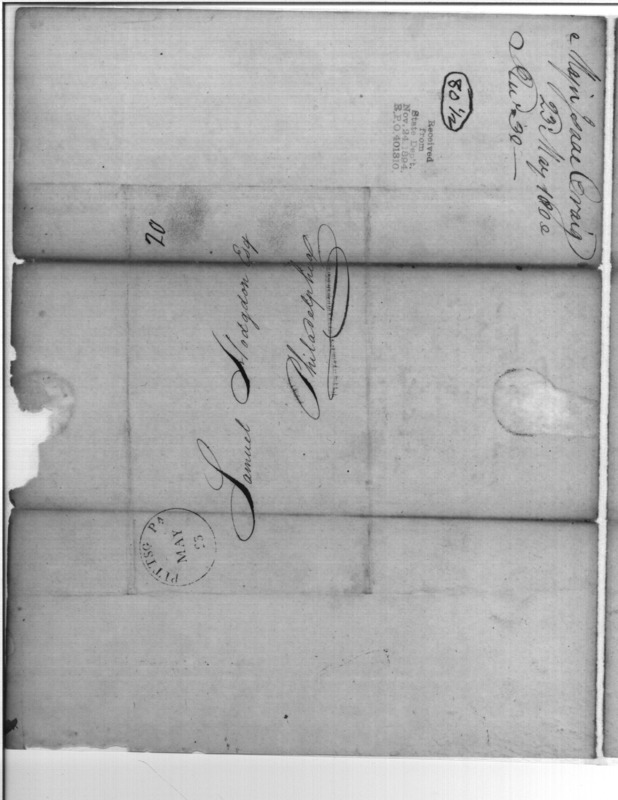 Maj. Isaac Craig
23 May 1800
80 1/2
Received
from
State Dep't.
Nov. 24, 1894
R.P.O. 401310
20
Samuel Hodgdon Esq
Philadelphia
PITTSG Pa
MAY
23